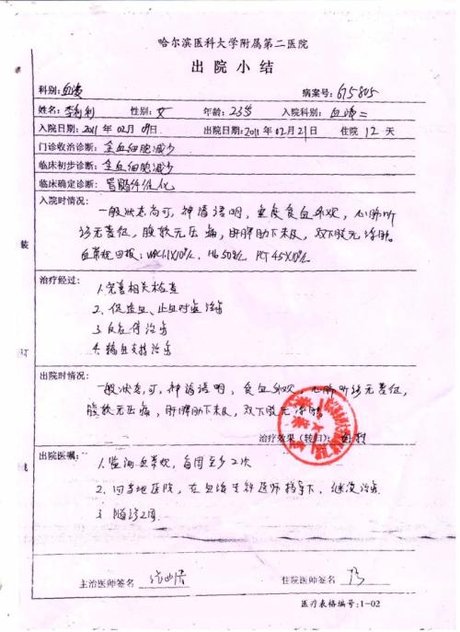 哈尔滨医科大学附属第二医院
出院小结
科别:血液 病案号:615805
姓名:李利利 性别:女 年龄:23岁 入院科别:血液二
入院日期:2011年02月09日 出院日期:2011年02月21日 住院12天
门诊收治诊断:全血细胞减少
临床初步诊断:全血细胞减少
临床确定诊断:骨髓纤维化
入院时情况:
一般状态尚可,神清语明,重度贫血外观,心肺听
诊无著征,腹软无压痛,肝脾肋下未及,双下肢无浮肿。
血常规回报:WBC1.1X10⁹/L HG 50g/L PCT 45X10⁹/L
治疗经过:
1.完善相关检查
2.促造血、止血对症治疗
3.
4.输血支持治疗
出院时情况:
一般状态尚可,神清语明,贫血外观,心肺听诊无著征,
腹软无压痛,肝脾肋下未及,双下肢无浮肿
治疗效果(转归):
出院医嘱:
1.监测血常规,每周至少2次
2.回当地医院,在血液专科医师指导下,继续治疗
3.随诊2周
主治医师签名 住院医师签名
医疗表格编号:1-02
装
订